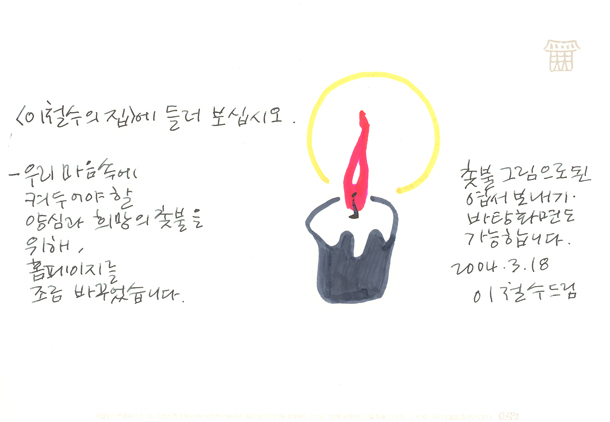 <이철수의 집>에 들러 보십시오.
- 우리 마음속에
켜두어야 할
양심과 희망의 촛불을
위해,
홈페이지를
조금 바꾸었습니다.
촛불 그림으로 된
엽서 보내기·
바탕화면도
가능합니다.
2004.3.18
이철수드림